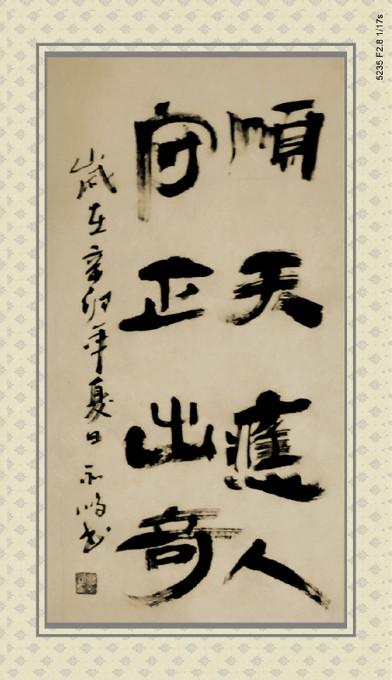 順天應人
守正出奇
歲在辛卯年夏日 书
5235 F2.8 1/17s